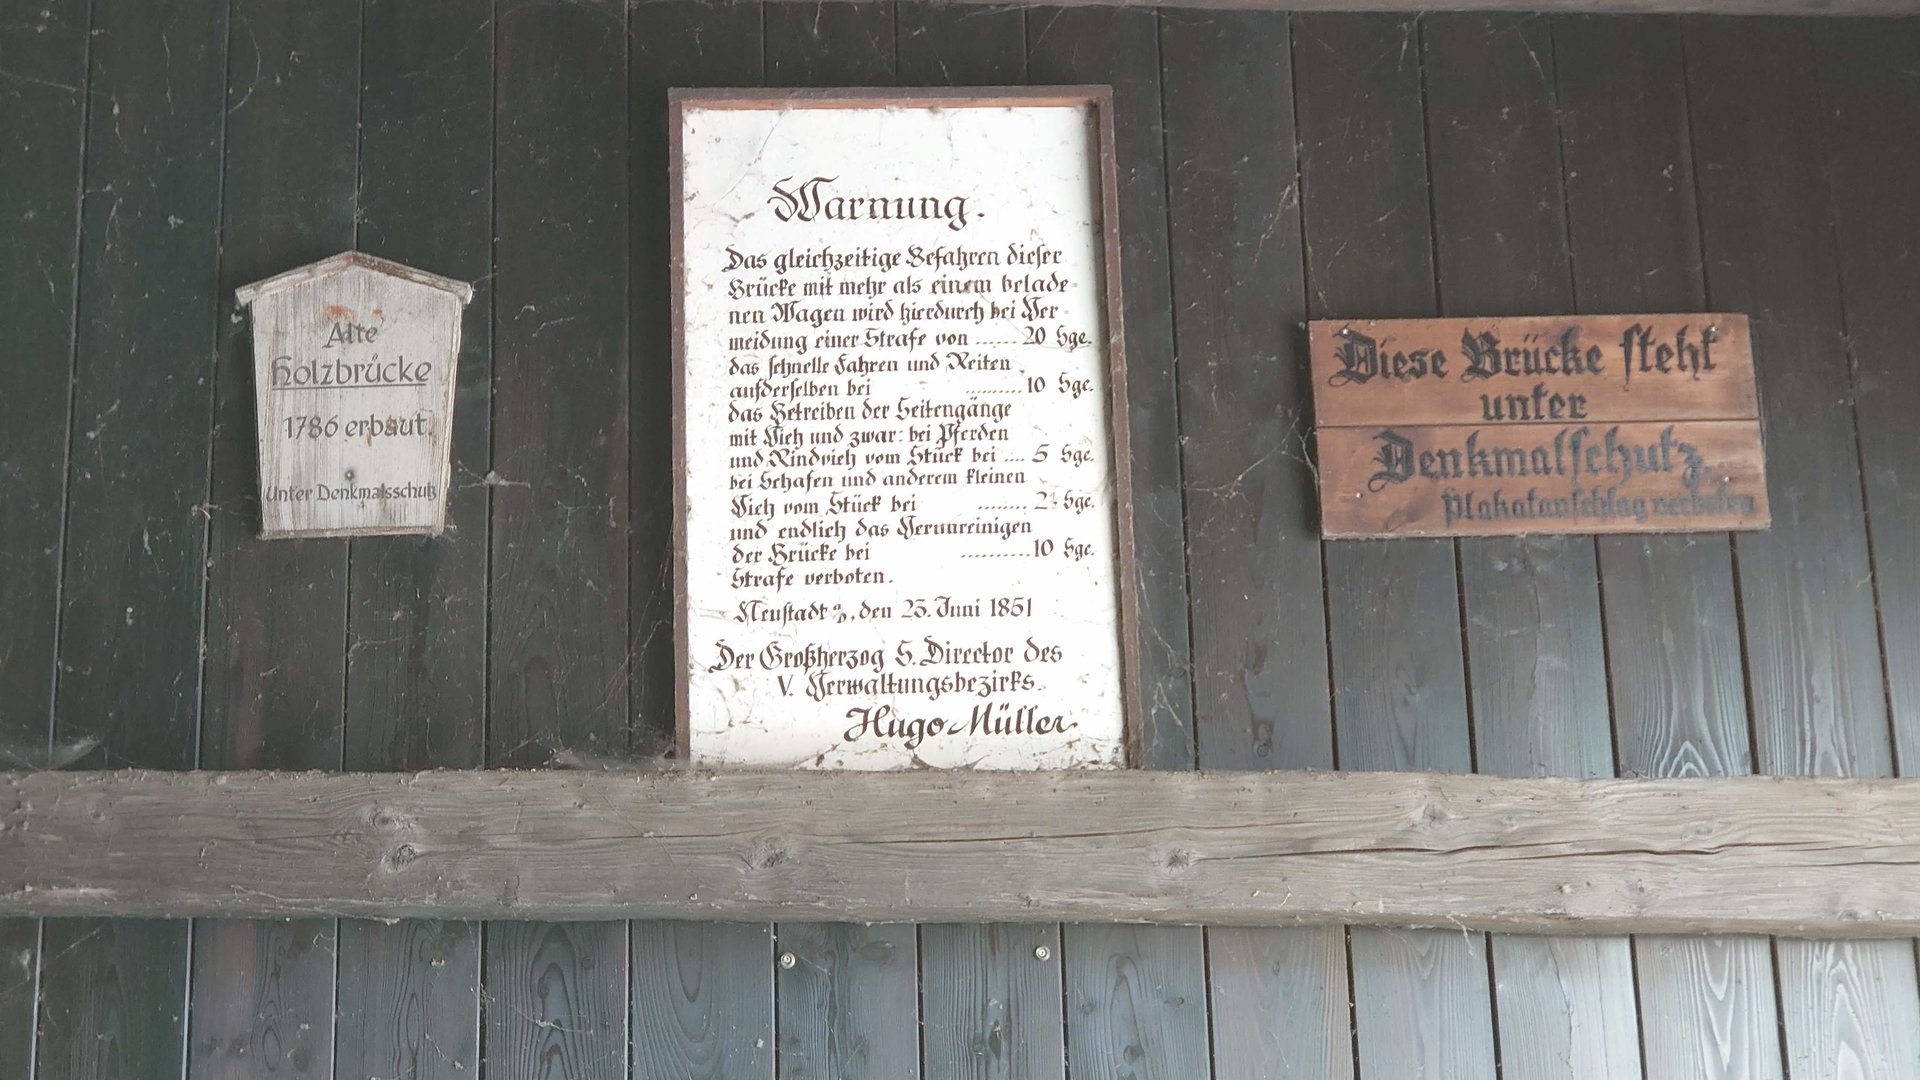 Alte
Holzbrücke
1786 erbaut
Unter Denkmalsschutz
Warnung.
Das gleichzeitige Befahren dieser
Brücke mit mehr als einem belade-
nen Wagen wird hierdurch bei Ver-
meidung einer Strafe von ...... 20 Sgr.
das schnelle Fahren und Reiten
aufderselben bei ......... 10 Sgr.
das Betreiben der Seitengänge
mit Vieh und zwar: bei Pferden
und Rindvieh vom Stück bei .... 5 Sgr.
bei Schafen und anderem kleinen
Vieh vom Stück bei ........ 2½ Sgr.
und endlich das Verunreinigen
der Brücke bei .......... 10 Sgr.
Strafe verboten.
Neustadt a/O, den 23. Juni 1851
Der Großherzog S. Director des
V. Verwaltungsbezirks.
Hugo Müller
Diese Brücke steht
unter
Denkmalschutz
Plakatanschlag verboten